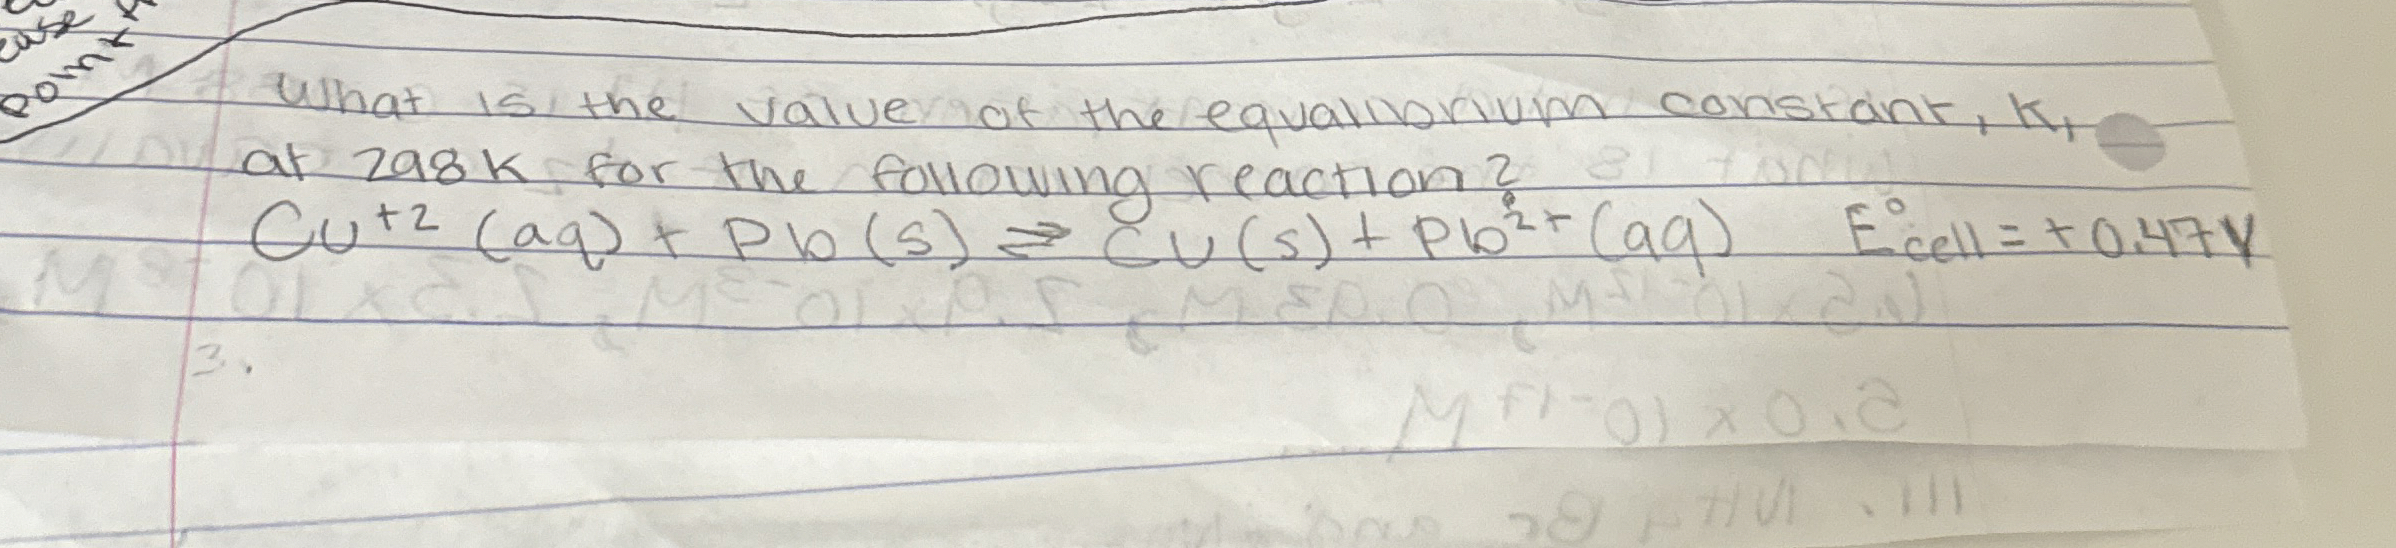 What is the value of the equalibrium constant, K,
at 298K for the following reaction?
Cu⁺² (aq) + Pb (s) ⇌ Cu (s) + Pb²⁺ (aq) E°cell = +0.47V
3.